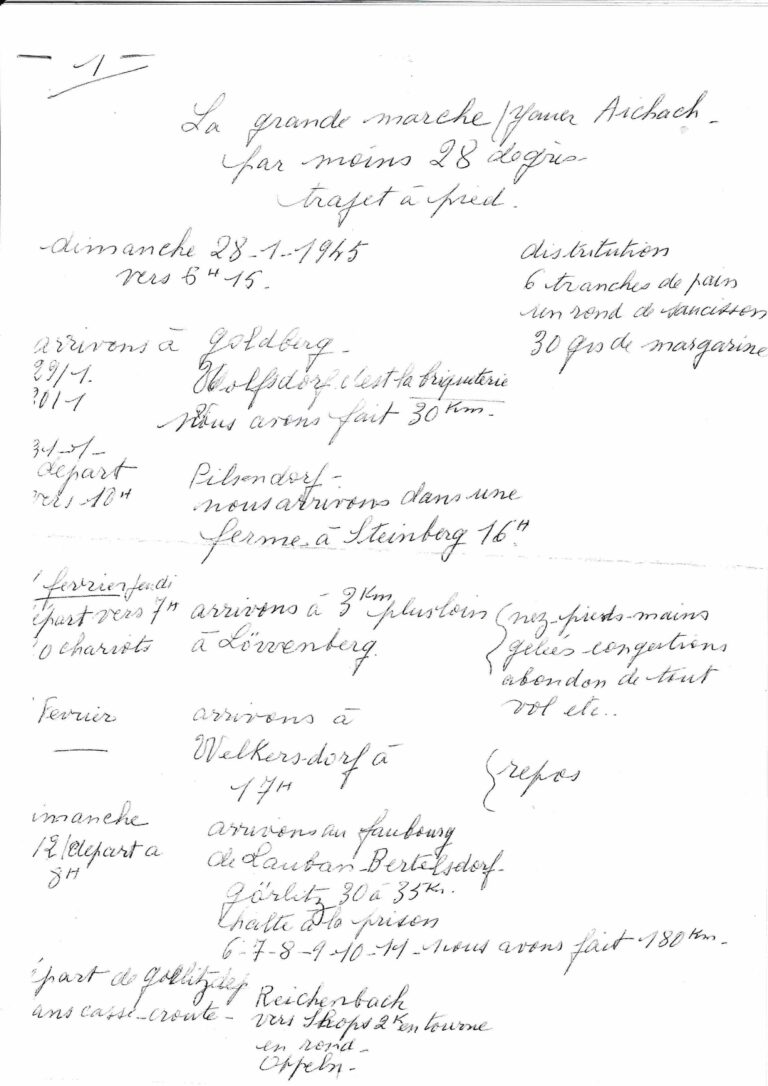 - 1 -
La grande marche / Yauer Aichach -
par moins 28 degrès -
trajet à pied.
dimanche 28-1-1945
vers 6H15.
distritution
6 tranches de pain
un rond de saucisson
30 grs de margarine
arrivons à Goldberg -
29/1.
Wolfsdorf c'est la briqueterie
30/1
Nous avons fait 30 Km.
31-1-
départ
vers 10H
Pilsendorf -
nous arrivons dans une
ferme à Steinberg 16H
fevrier jeudi
épart vers 7H
0 chariots
arrivons à 3Km plus loin
à Lövvenberg.
nez-pieds-mains
gelées-congestions
abondon de tout
vol etc..
Fevrier
arrivons à
Welkersdorf à
17H
repos
imanche
12/depart a
8H
arrivons au faubourg
de Lauban-Bertelsdorf-
Görlitz 30 à 35Km.
halte à la prison
6-7-8-9-10-11-nous avons fait 180Km-
épart de
ans casse-croute-
Reichenbach
vers 2K en tourne
en rond-
Oppeln-